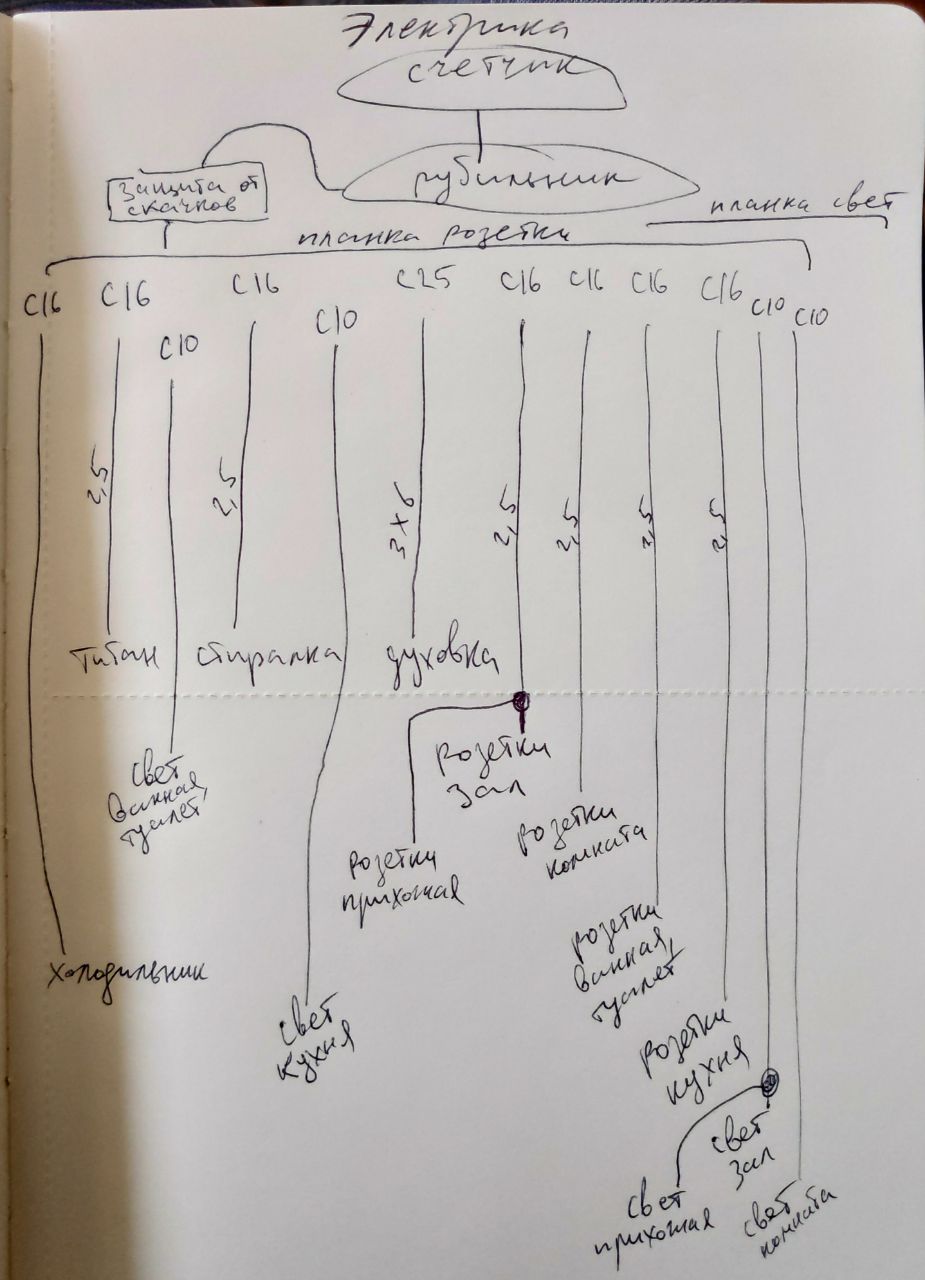 Электрика
счетчик
рубильник
защита от
скачков
планка свет
планка розетки
C16
C16
C10
C16
C10
C25
C16
C16
C16
C16
C10
C10
2,5
2,5
3x6
2,5
2,5
2,5
2,5
титан
стиралка
духовка
свет
ванная,
туалет
розетки
зал
розетки
прихожая
розетки
комната
розетки
ванная,
туалет
холодильник
свет
кухня
розетки
кухня
свет
зал
свет
прихожая
свет
комната